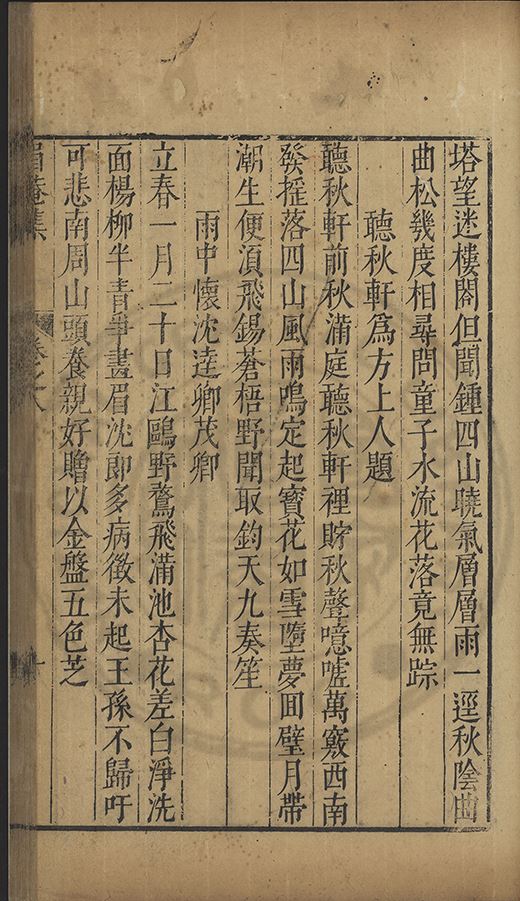 塔望迷樓閣但聞鍾四山曉氣層層雨一逕秋陰曲
曲松幾度相尋問童子水流花落竟無踪
聽秋軒為方上人題
聽秋軒前秋滿庭聽秋軒裡貯秋聲噫噓萬竅西南
發摧落四山風雨鳴定起寶花如雪墮夢回璧月帶
潮生便湏飛錫蒼梧野聞取鈞天九奏笙
雨中懷沈達卿茂卿
立春一月二十日江鷗野鶩飛滿池杏花差白淨洗
面楊柳半青爭畫眉沈郎多病徵未起王孫不歸吁
可悲南周山頭養親好贈以金盤五色芝
眉菴集 卷之八 十